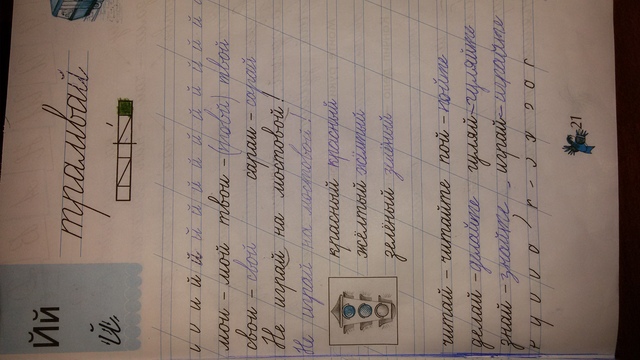 Йй
Йй
трамвай
й й й й й й й й й й й й
мои - мой твои - твой
свой сараи - сарай
Не играй на мостовой!
Не играй на мостовой!
красный красный
жёлтый жёлтый
зелёный зелёный
читай - читайте пой - пойте
делай - делайте гуляй - гуляйте
знай - знайте играй - играйте
21